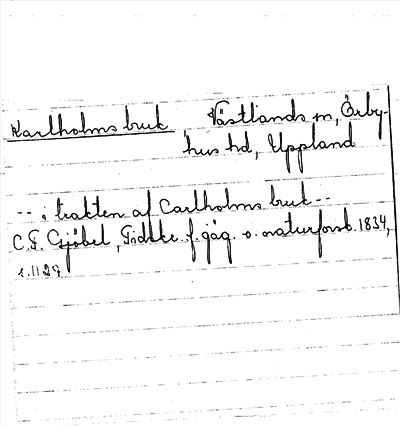 Karlholms bruk Västlands sn, Örby-
hus hd, Uppland
-- i trakten af Carlholms bruk --
C.F. Gjöbel, Tidskr. f. jäg. o. naturforsk. 1834,
s. 1129